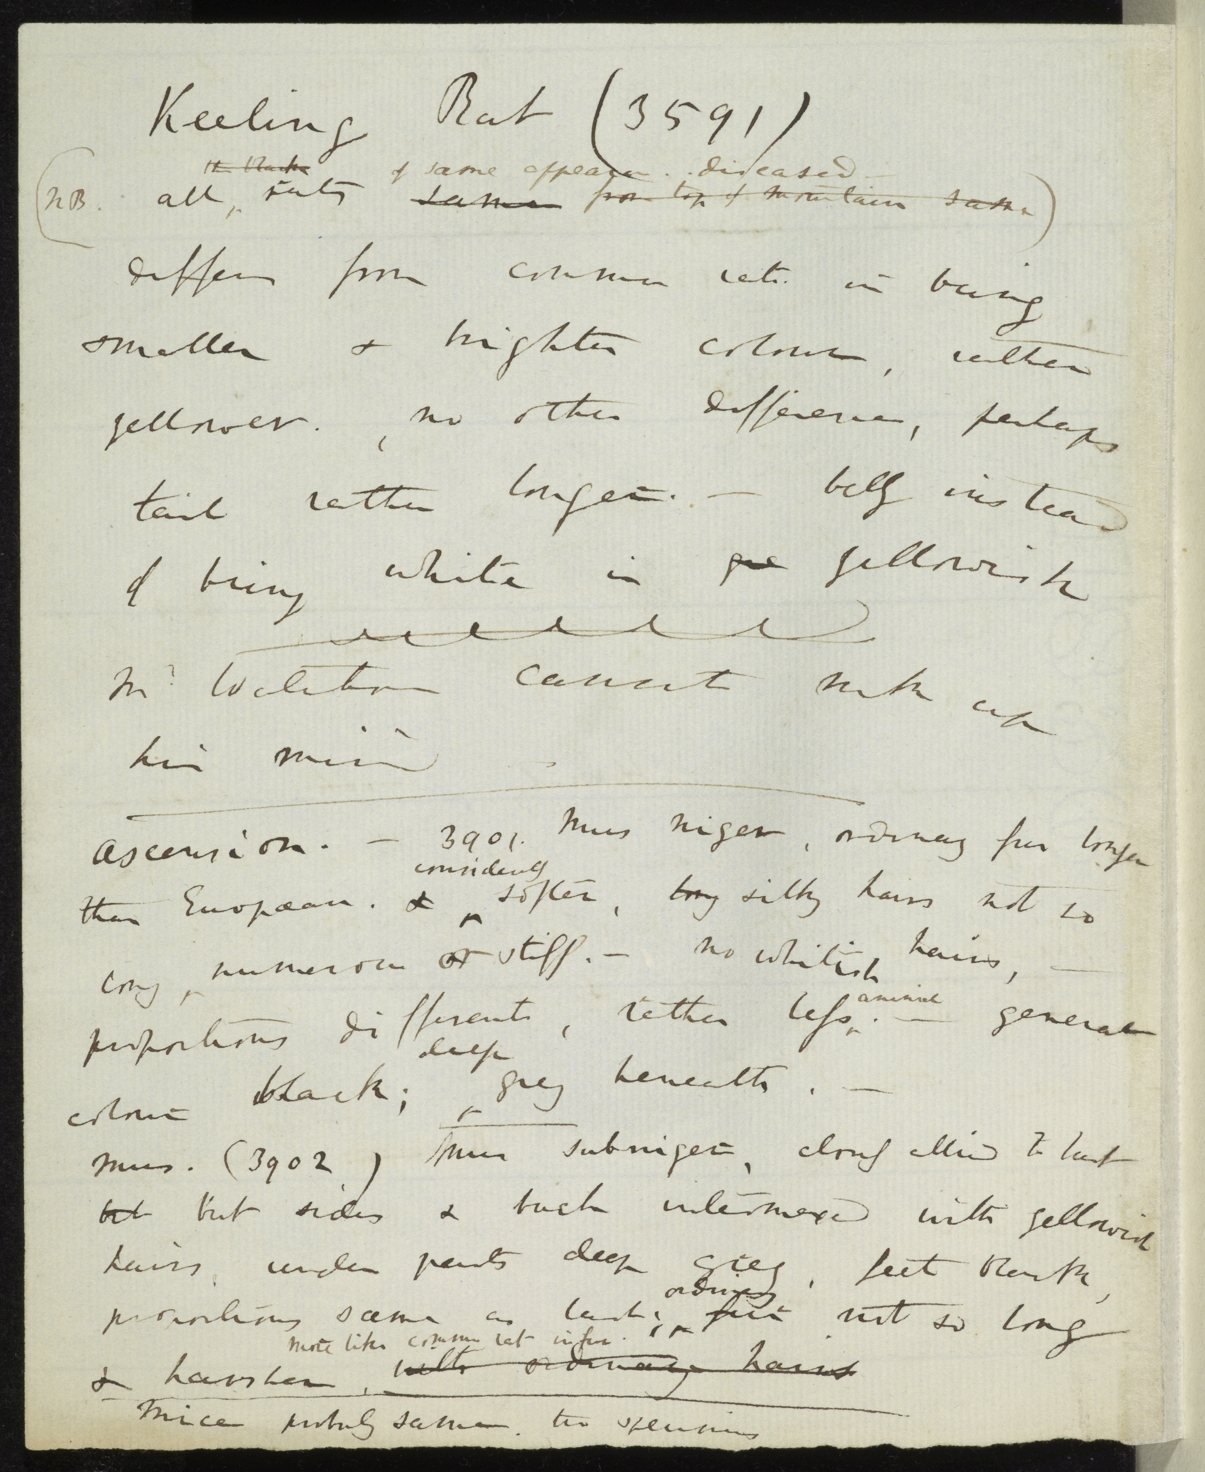 Keeling Rat (3591)
the blacks of same appearan.. diseased —
(NB. all, rats same from top of mountain same)
differs from common rats in being
smaller & brighter colour, rather
yellower. , no other difference, perhaps
tail rather longer. — belly instead
of being white is ye yellowish
Mr Waterhouse cannot make up
his mind
Ascension. — 3901. Mus niger, ordinary fur longer
considerably
than European. & softer, long silky hairs not so
long, numerous or stiff. — no whitish hairs, —
proportions different, rather less animal. — general
deep
colour black; grey beneath. —
Mus. (3902) Mus subniger, closely allied to last
but but sides & back intermixed with yellowish
hairs, under parts deep grey, feet black,
ordinary
proportions same as last; fur not so long
more like common rat in fur.
& harsher, with ordinary hairs
Mice probably same. two specimens